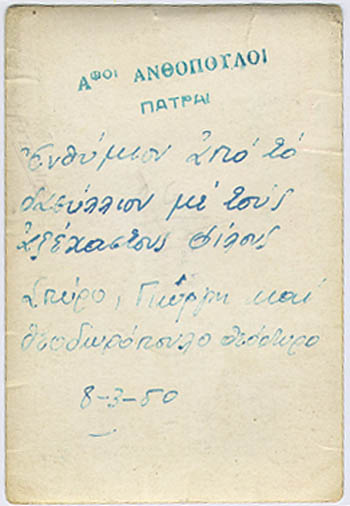 Αφοι ΑΝΘΟΠΟΥΛΟΙ
ΠΑΤΡΑΙ
Ἐνθύμιον ἀπό τό
Δασύλλιον μέ τούς
ἀξέχαστους φίλους
Σπύρο, Γιώργη καί
Θεοδωρόπουλο Θεόδωρο
8-3-50